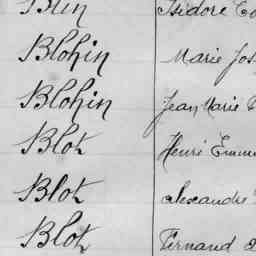 Blin Isidore
Blohin Marie Jos
Blohin Jean Marie
Blot Henri Emm
Blot alexandre
Blot Fernand